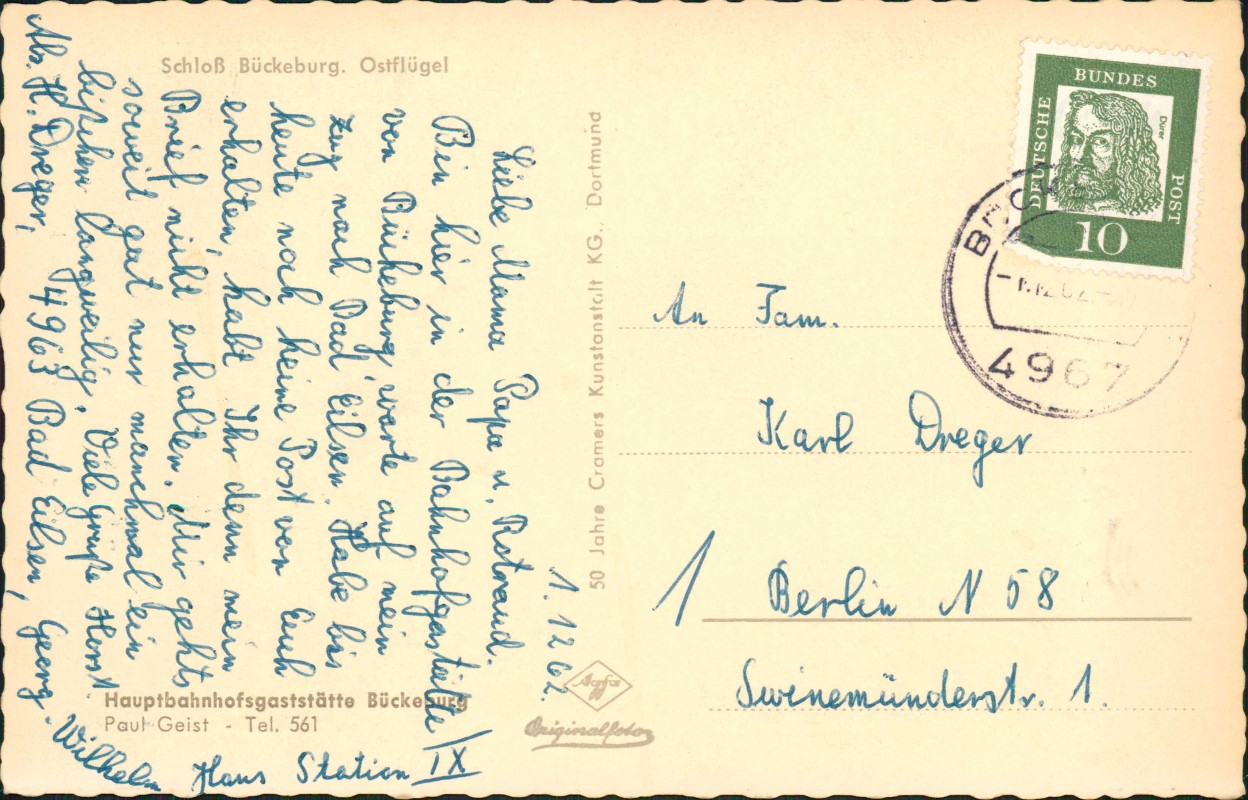 Schloß Bückeburg. Ostflügel
1. 12 62.
Liebe Mama Papa u. Rotraud.
Bin hier in der Bahnhofgastätte
von Bückeburg, warte auf mein
zug nach Bad Eilsen. Habe bis
heute noch keine Post von Euch
erhalten, habt Ihr denn mein
Brief nicht erhalten. Mir gehts
soweit gut nur manchmal ein
bißchen langweilig. Viele Grüße Horst.
Abs. H. Dreger, 4963 Bad Eilsen, Georg
Wilhelm Haus Station IX
Hauptbahnhofsgaststätte Bückeburg
Paul Geist - Tel. 561
50 Jahre Cramers Kunstanstalt KG., Dortmund
Agfa
Originalfoto
DEUTSCHE BUNDES POST
Dürer
10
4967
An Fam.
Karl Dreger
1 Berlin N 58
Swinemünderstr. 1.